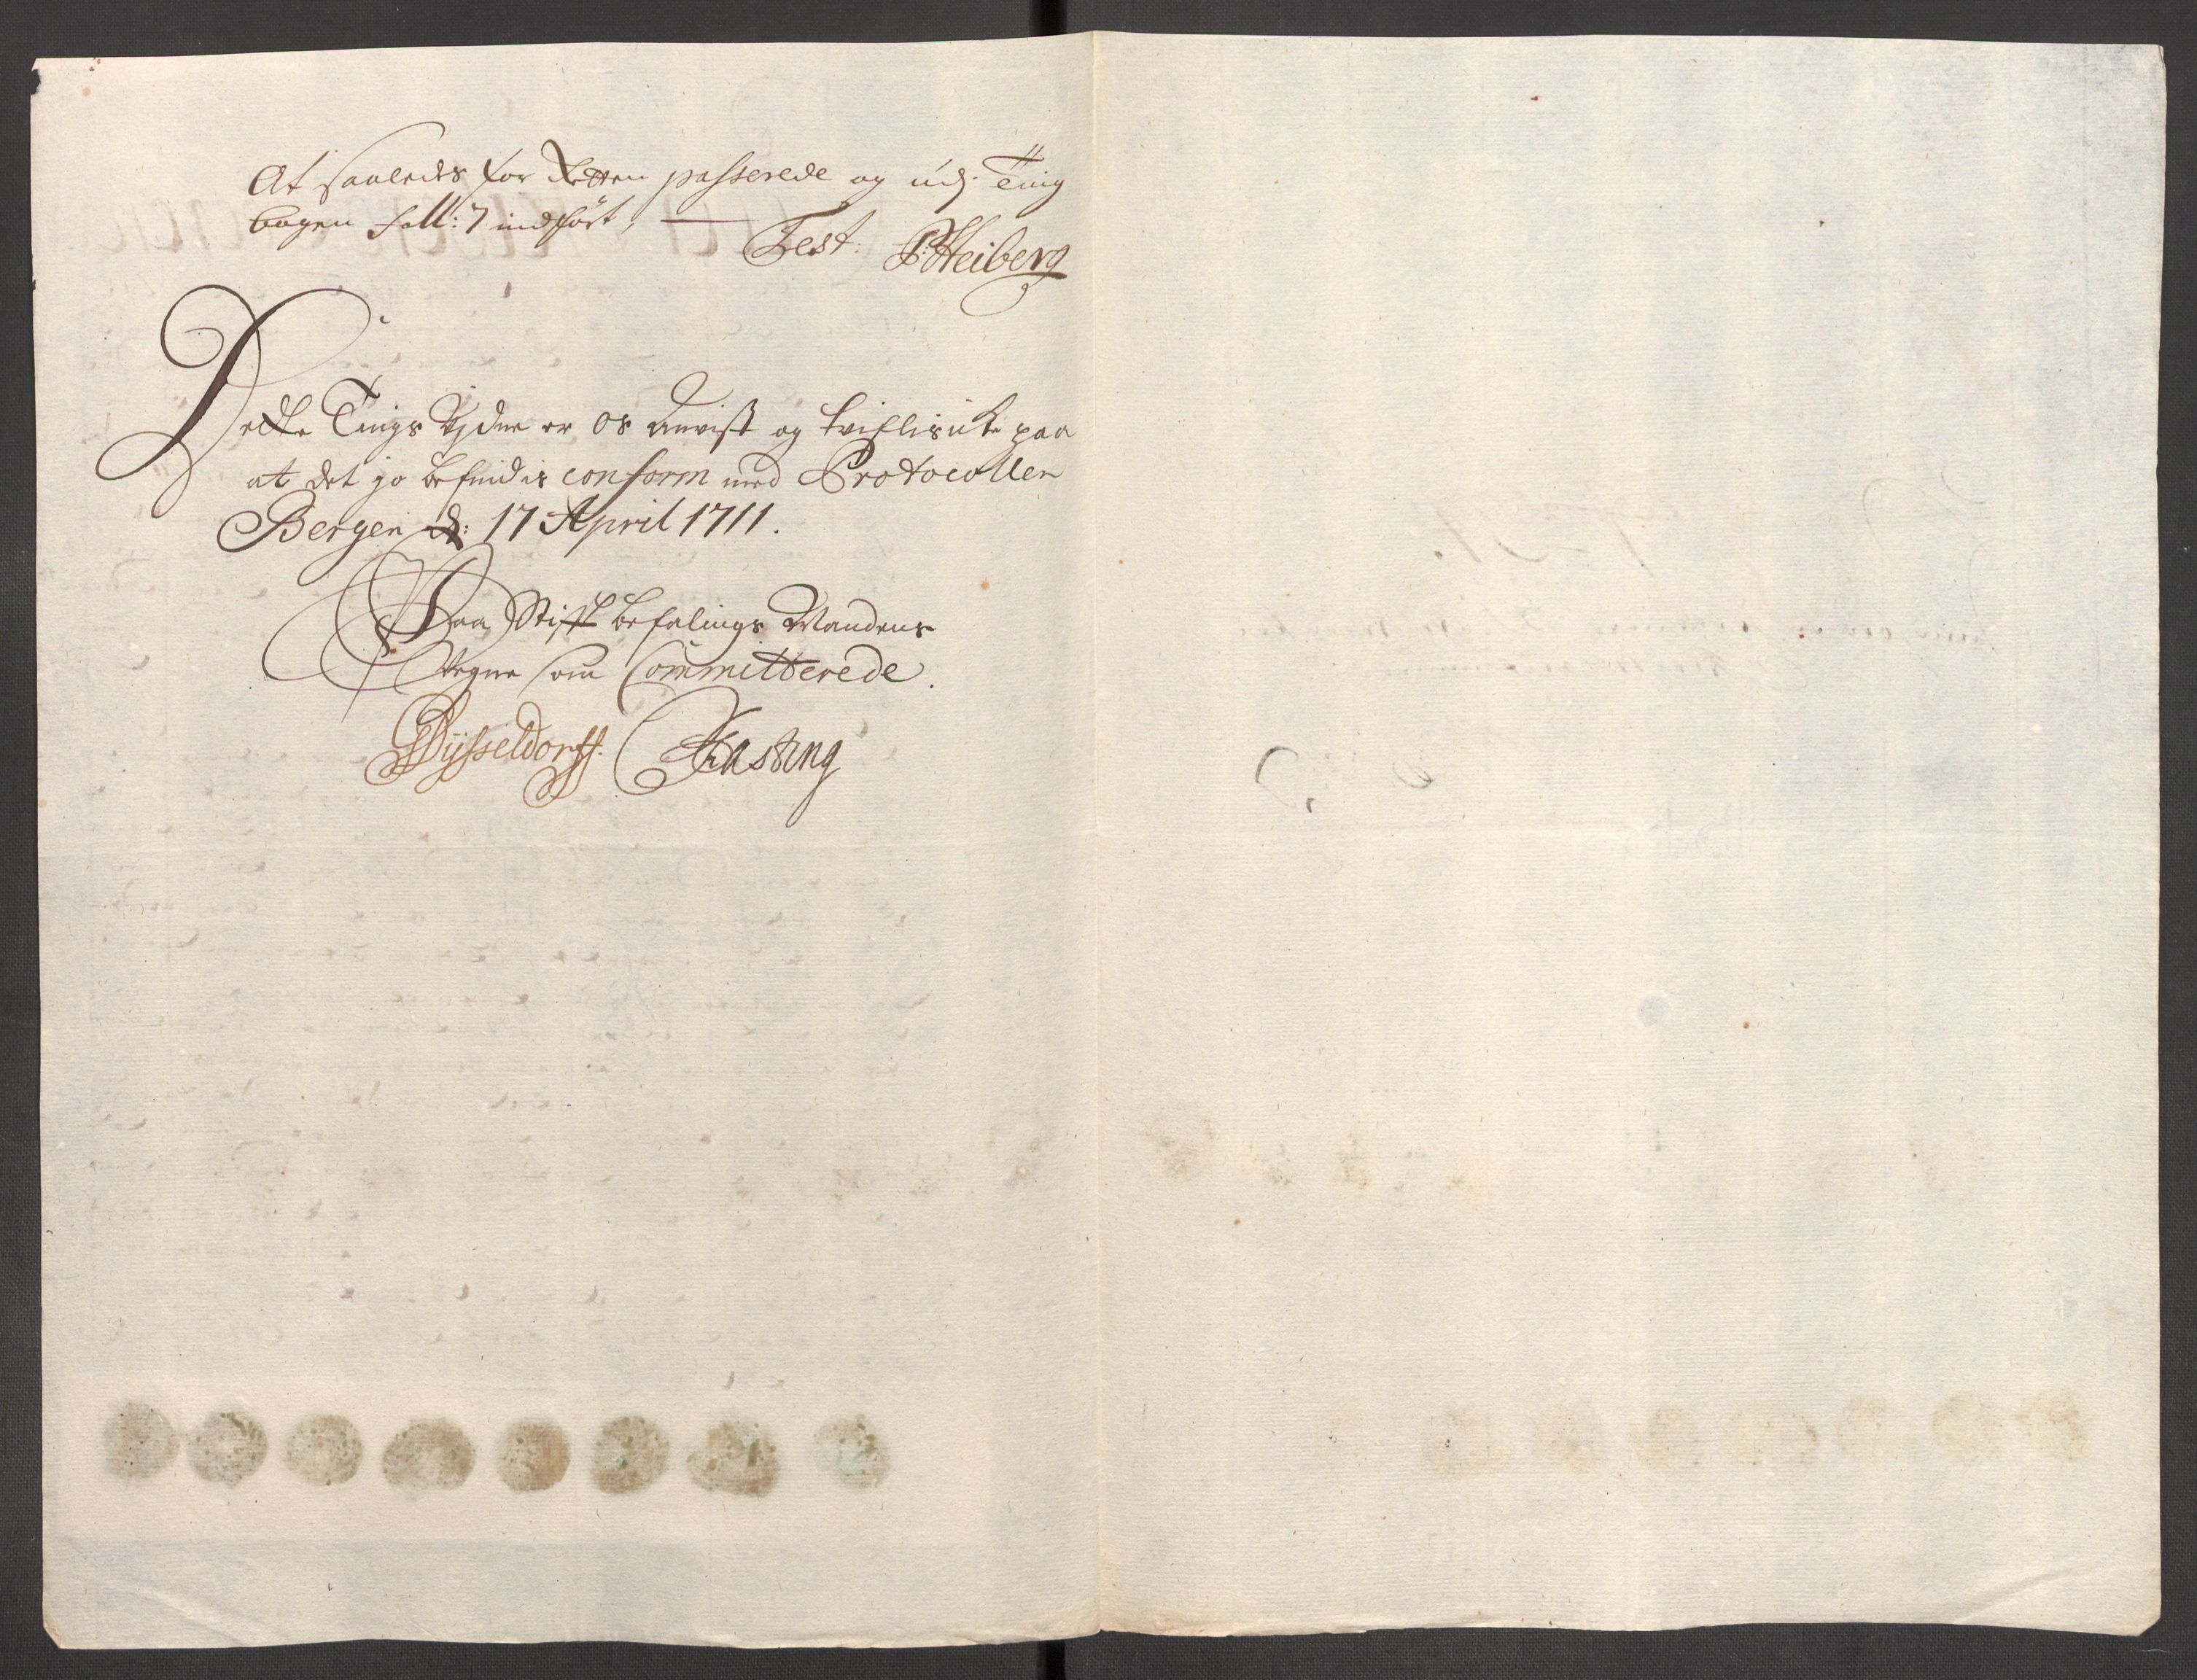 At saaledes for Retten passerede og udj Ting
bogen foll: 7 indført,
Test: P: Heiberg
Dette Tings Vidne er os anvist og tvifles icke paa
at det jo befindis conform med Protocollen
Bergen d: 17 April 1711.
Paa Stift befalings Mandens
Vegne som Committerede.
Dysseldorff. Fasting